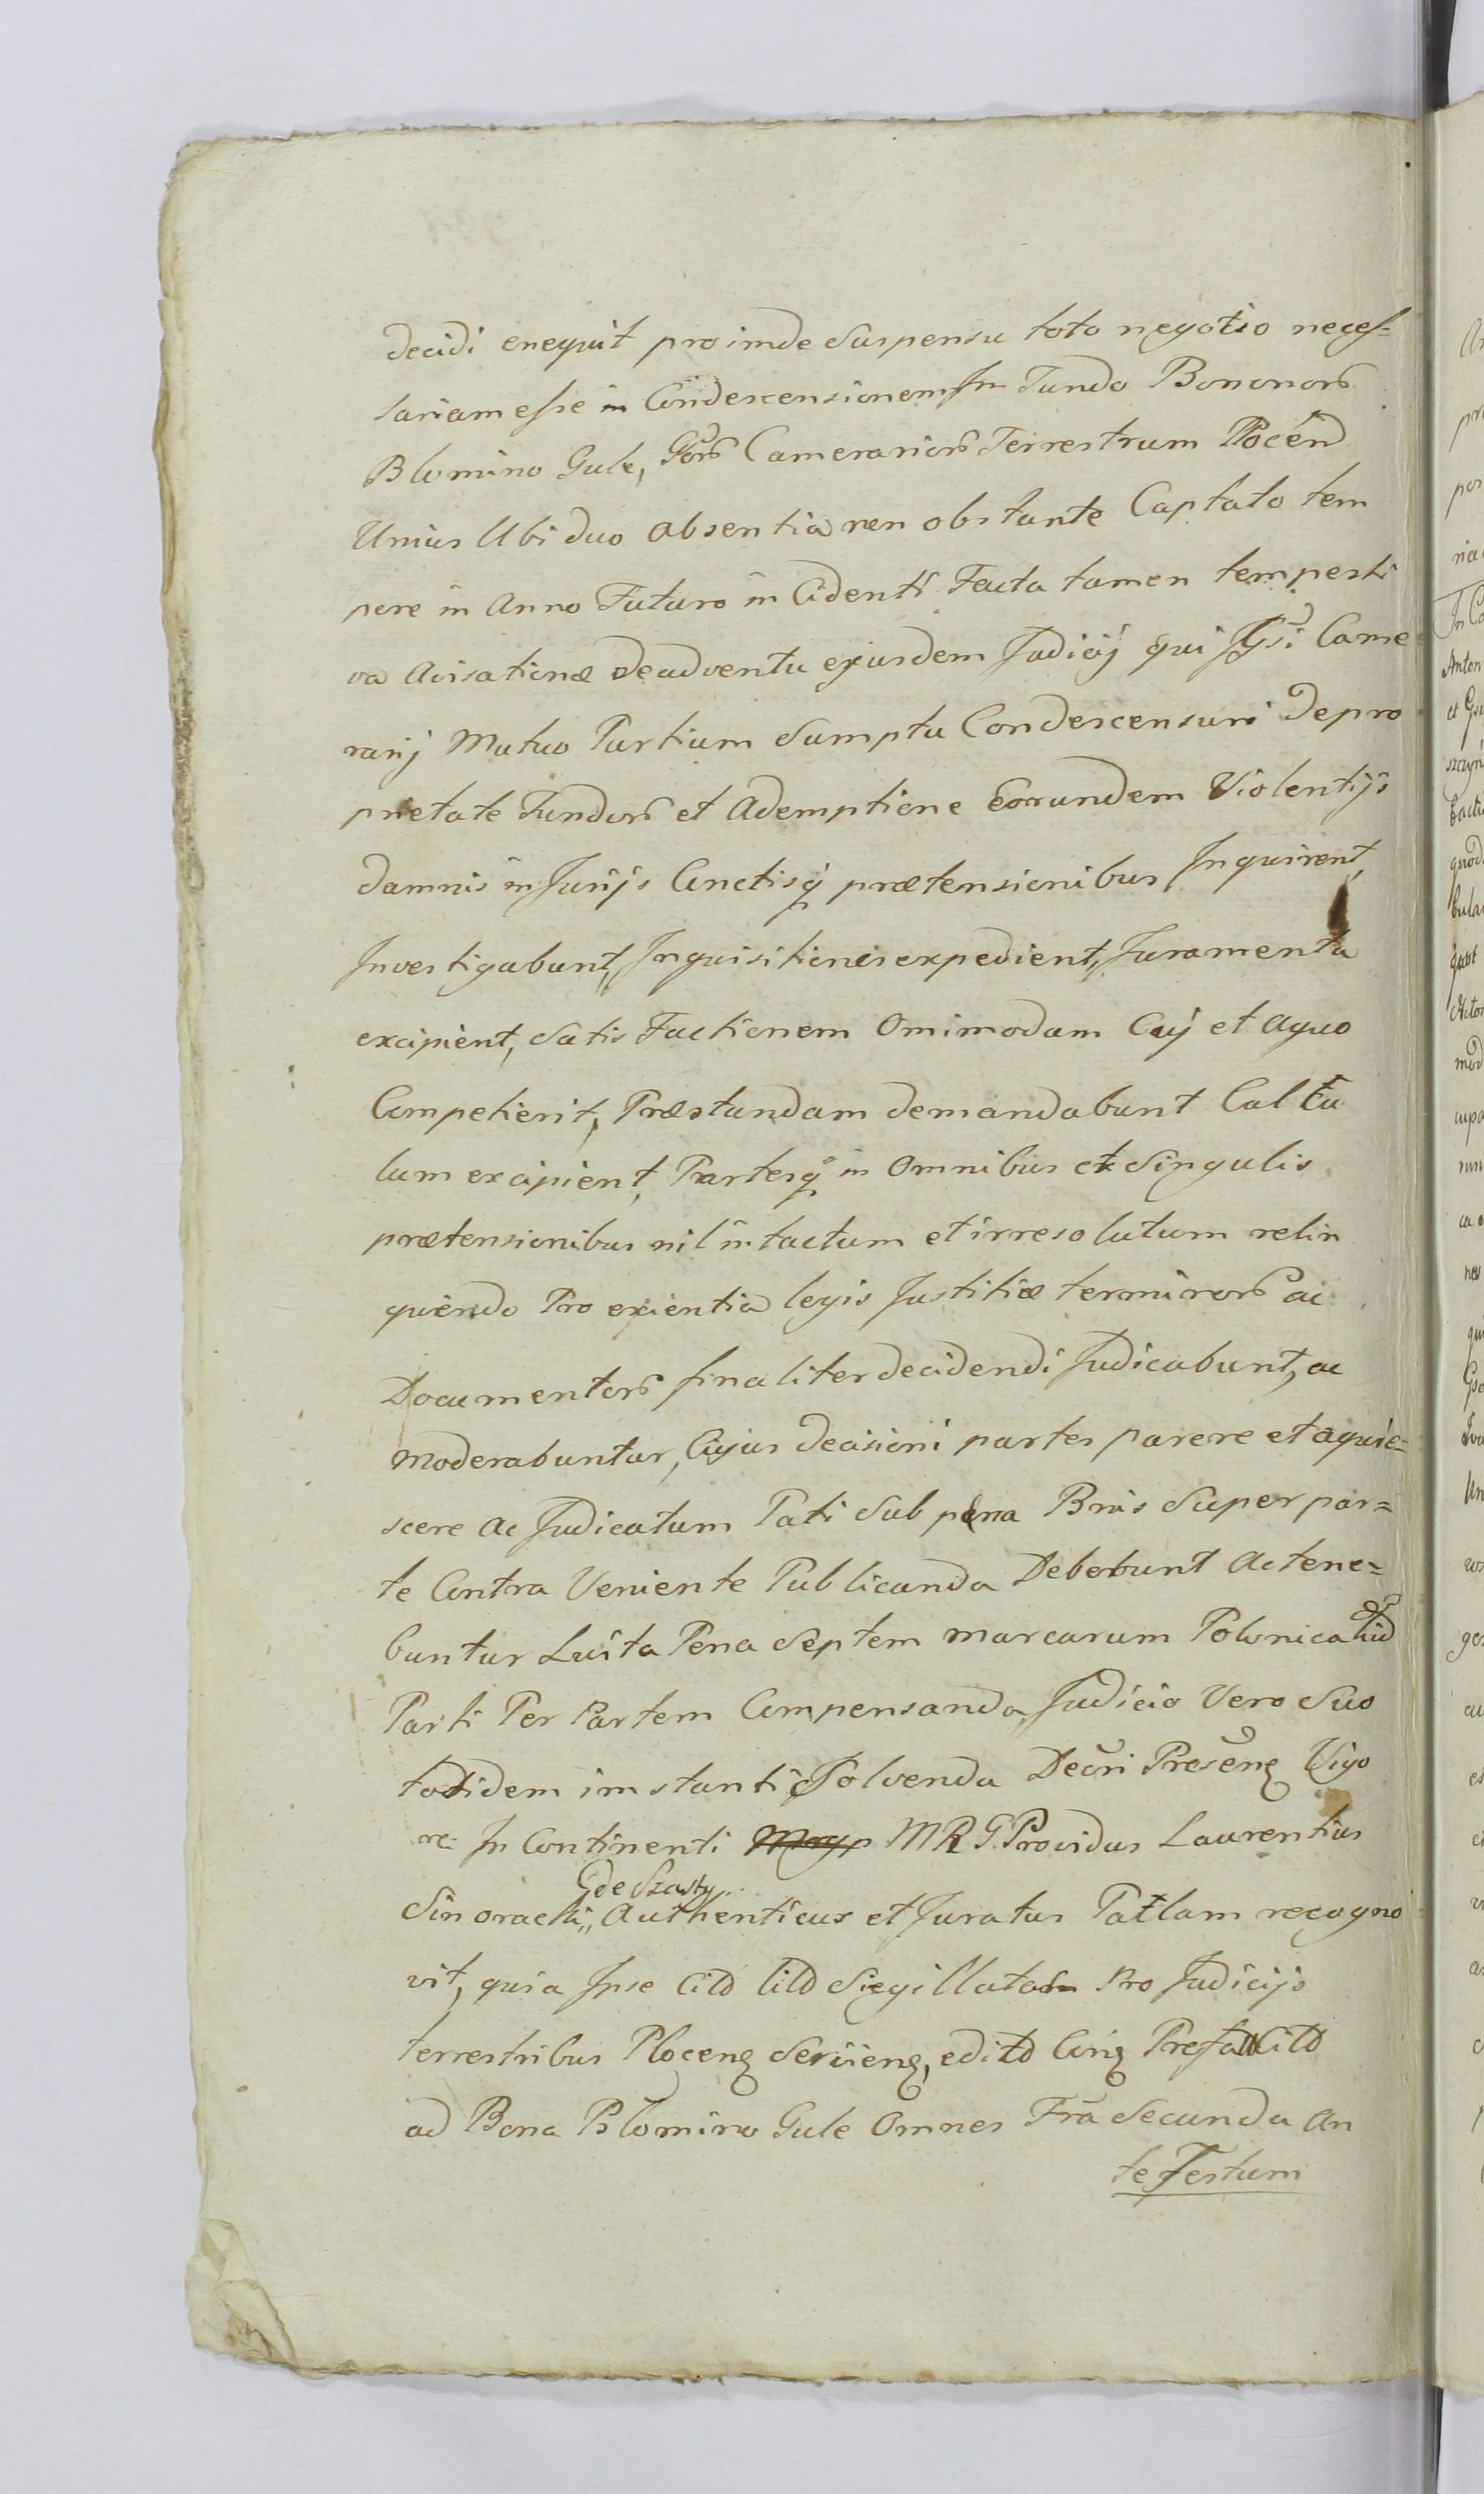 decidi enequit proinde Suspensu toto negotio neces=
sariam esse in Condescensionem In Fundo Bononorũ
Blomino Gule, Gsorũ Camerariorũ Terrestrum Plocen
Unius Ubi duo absentia non obstante Captato tem
pore in Anno Futuro in Cidenti Facta tamen tempesti
va Avisatione de adventu ejusdem Judicij qui Gsi Came
rarij Mutuo Partium Sumptu Condescensuri De pro
prietate Fundorũ et Ademptione Eorundem Violentijs
damnis inJurijs Cunctisq́ prætensionibus Inquirent,
Investigabunt, Inquisitiones expedient, Juramenta
excipient, Satis Factionem Omimodam Cuj et aquo
Competierit, Præstandam demandabunt Calcu
lum excipient, Partesq́ in Omnibus et Singulis
prætensionibus nil intactum et irresolutum relin
quendo Pro exientia legis Justitiæ terminorũ ac
Documentorũ finaliter decidendi Judicabunt, ac
moderabuntur, Cujus decisioni partes parere et aquie=
scere ac Judicatum Pati Sub pena Bnis Super par=
te Contra Veniente Publicanda Debebunt ac tene=
buntur Luita Pena Septem marcarum Polonicaliũ
Parti Per Partem Compensanda, Judicio Vero Suo
totidem imstanti Solvenda Decri Preseng Vigo
re. In Continenti MRG. Providus Laurentius
Sinoracki, Gde Szasty Authenticus et Juratus Patlam recogno
vit, quia Ipse Citõ litõ Siegillatam Pro Judicijs
terrestribus Ploceng Servieng, editõ Cing Prefat Citõ
ad Bona Blomino Gule Omnes Fra Secunda an
te Festum